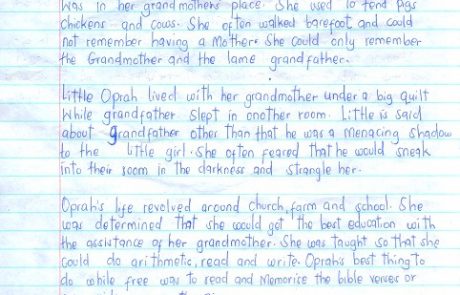 was in her grandmothers place. She used to tend pigs
chickens and cows. She often walked barefoot and could
not remember having a Mother. She could only remember
the Grandmother and the lame grandfather.
Little Oprah lived with her grandmother under a big quilt
while grandfather slept in another room. Little is said
about grandfather other than that he was a menacing shadow
to the little girl. She often feared that he would sneak
into their room in the darkness and strangle her.
Oprah's life revolved around church, farm and school. She
was determined that she would get the best education with
the assistance of her grandmother. She was taught so that she
could do arithmetic, read and write. Oprah's best thing to
do while free was to read and Memorise the bible verses or